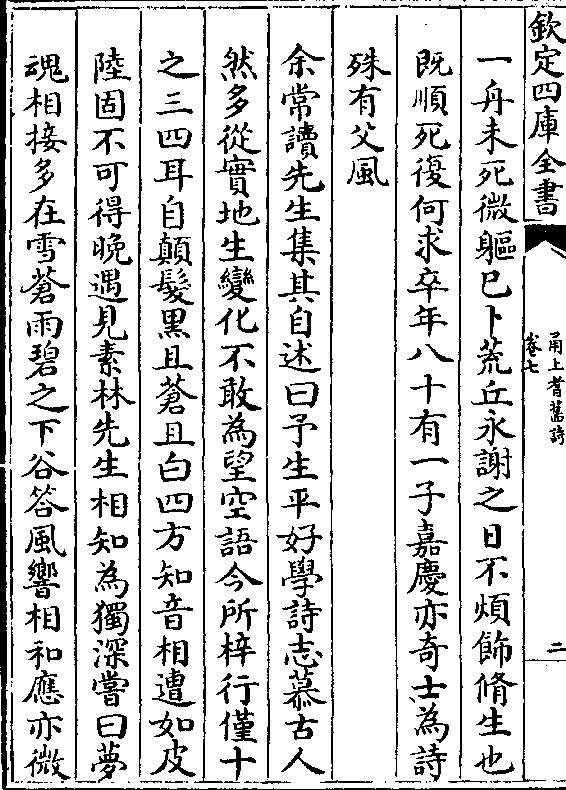 欽定四庫全書
甬上耆舊詩
卷七
二
一舟未死微軀已卜荒丘永謝之日不煩飾脩生也
既順死復何求卒年八十有一子嘉慶亦奇士為詩
殊有父風
余常讀先生集其自述曰予生平好學詩志慕古人
然多從實地生變化不敢為望空語今所梓行僅十
之三四耳自顛髮黑且蒼且白四方知音相遭如皮
陸固不可得晚遇見素林先生相知為獨深嘗曰夢
魂相接多在雪蒼雨碧之下谷答風響相和應亦微